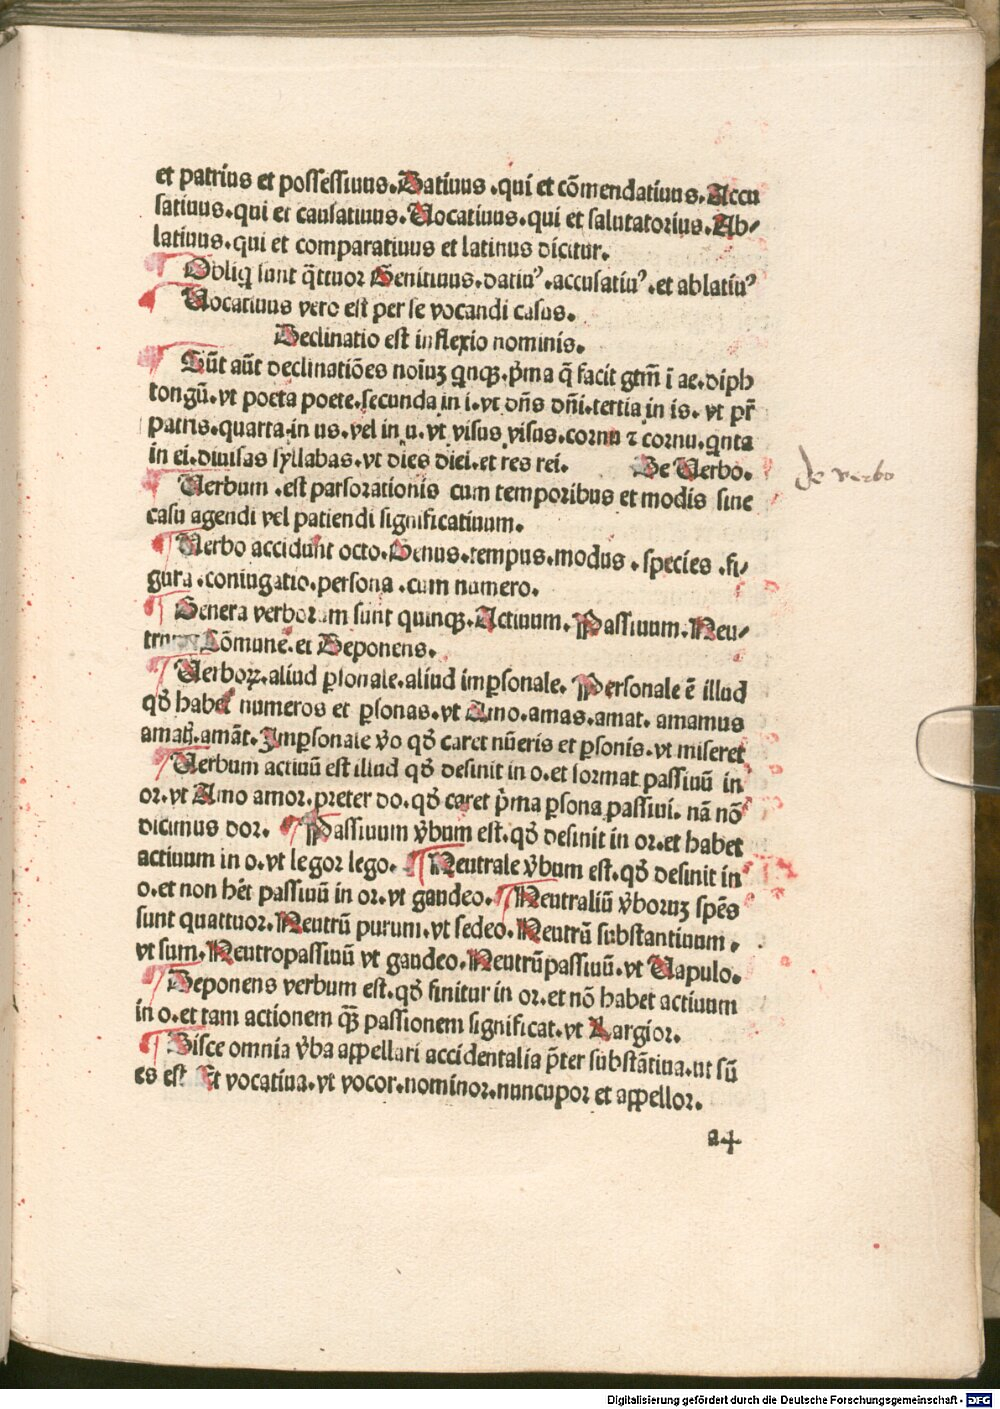 et patrius et possessiuus. Datiuus .qui et cōmendatiuus. Accu
satiuus.qui et causatiuus. Uocatiuus.qui et salutatorius. Ab⸗
latiuus.qui et comparatiuus et latinus dicitur.
Obliqͥ sunt q̄ttuor Genitiuus.datiuꝰ.accusatiuꝰ.et ablatiuꝰ
Uocatiuus vero est per se vocandi casus.
Declinatio est inflexio nominis.
Sūt aūt declinatiōes noīuꝫ qͥnqꝫ.p̄ma q̄ facit gtm̄ ī ae.diph
tongū.vt poeta poete.secunda in i.vt dn̄s dn̄i.tertia in is. vt pr̄
patris.quarta.in us.vel in u.vt visus visus.cornu ⁊ cornu.qͥnta
in ei.diuisas syllabas.vt dies diei.et res rei. De Uerbo.
de verbo
Uerbum .est parsorationis cum temporibus et modis sine
casu agendi vel patiendi significatiuum.
Uerbo accidunt octo. Genus.tempus.modus.species.fi⸗
gura.coniugatio.persona.cum numero.
Genera verborum sunt quinqꝫ. Actiuum. Passiuum. Neu⸗
trum Cōmune.et Deponens.
Uerboꝝ.aliud ꝑsonale.aliud imꝑsonale. Personale ē illud
qd̄ habet numeros et ꝑsonas.vt Amo.amas.amat. amamus
amatꝭ.amāt. Imꝑsonale v̄o qd̄ caret nūeris et ꝑsonis.vt miseret
Uerbum actiuū est illud qd̄ desinit in o.et format passiuū in
or.vt Amo amor.preter do.qd̄ caret p̄ma ꝑsona passiui. nā nō
dicimus dor. Passiuum v̄bum est.qd̄ desinit in or.et habet
actiuum in o.vt legor lego. Neutrale v̄bum est.qd̄ desinit in
o.et non hēt passiuū in or.vt gaudeo. Neutraliū v̄boruꝫ spēs
sunt quattuor. Neutrū purum.vt sedeo. Neutrū substantiuum.
vt sum. Neutropassiuū vt gaudeo. Neutrūpassiuū.vt Uapulo.
Deponens verbum est.qd̄ finitur in or.et nō habet actiuum
in o.et tam actionem qꝫ̄ passionem significat.vt Largior.
Disce omnia v̄ba appellari accidentalia p̄ter substātiua.ut sū
es est Et vocatiua.vt vocor.nominor.nuncupor et appellor.
a4
Digitalisierung gefördert durch die Deutsche Forschungsgemeinschaft - DFG